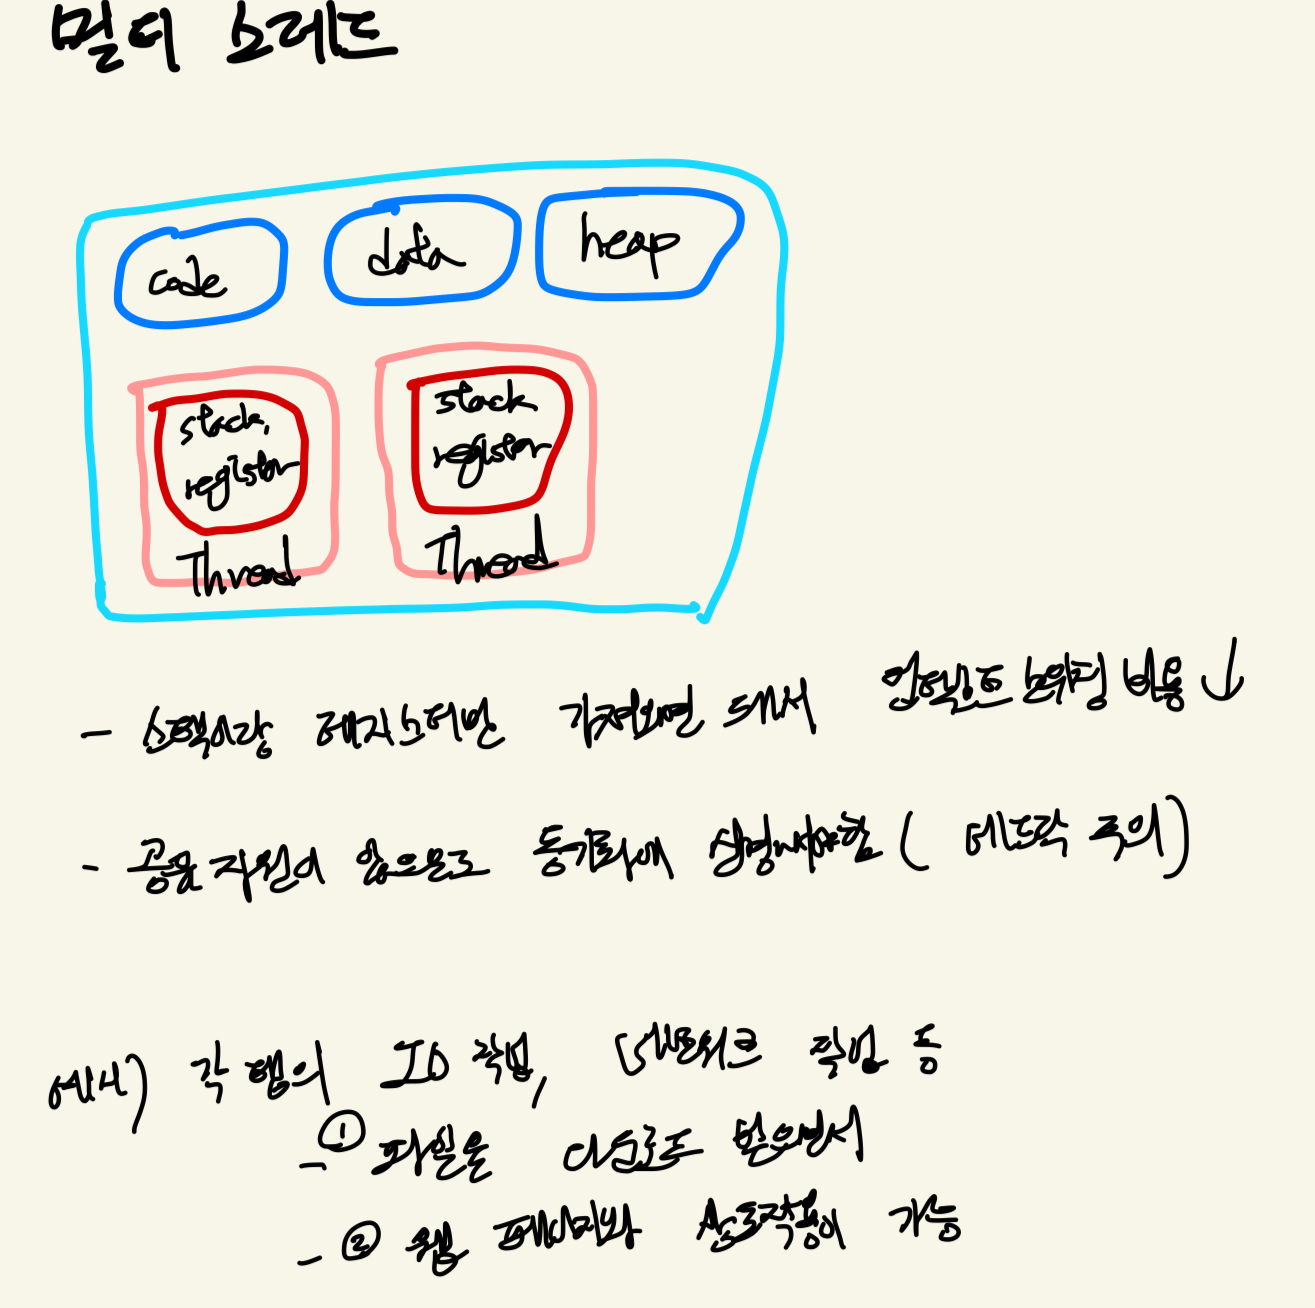 멀티 스레드
code data heap
stack, register
Thread
stack register
Thread
- 스택이랑 레지스터만 가져오면 돼서 컨텍스트 스위칭 비용 ↓
- 공유 자원이 있으므로 동기화에 신경써야함 ( 데드락 주의 )
예시) 각 탭의 IO 작업, 네트워크 작업 등
- ① 파일을 다운로드 받으면서
- ② 웹 페이지와 상호작용이 가능